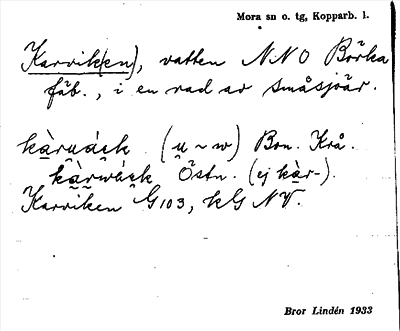 Mora sn o. tg, Kopparb. l.
Karvik(en), vatten N N O Börka
fäb., i en rad av småsjöar.
kàruásk (u ~ w) Bon. Krå.
kàrwásk Östn. (ej kàr-).
Karviken G 103, kG NV.
Bror Lindén 1933